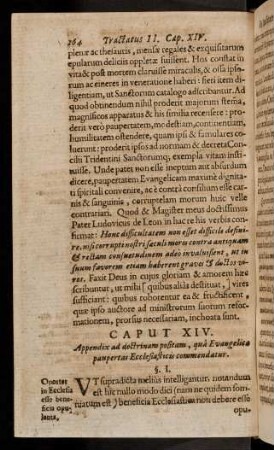 364 Tractatus II. Cap. XIV.
plenæ ac thesauris, mensæ regales & exquisitarum
epularum deliciis oppletæ fuissent. Hos constat in
vita & post mortem claruisse miraculis, & ossa ipso-
rum ac cineres in veneratione haberi: sieri item di-
ligentiam, ut Sanctorum catalogo adscribantur. Ad
quod obtinendum nihil proderit majorum stema,
magnificos apparatus & his similia recensere: pro-
derit verò paupertatem, modestiam, continentiam,
humilitatem ostendere, quam ipsi & famulares co-
luerunt: proderit ipsos ad normam & decreta Con-
cilii Tridentini Sanctorumq; exempla vitam insti-
tuisse. Unde patet non esse ineptum aut absurdum
dicere, paupertatem Evangelicam maximè dignita-
ti spirituali convenire, ac è contra consilium esse car-
nis & sanguinis, corruptelam morum huic velle
contrariari. Quod & Magister meus doctissimus
Pater Ludovicus de Leon in hac re his verbis con-
firmat: Hanc difficultatem non esset difficile defini-
re, nisi corrupti nostri sæculi mores contra antiquam
& rectam consuetudinem adeo invaluissent, ut in
suum favorem etiam haberent graves & doctos vi-
ros. Faxit Deus in cujus gloriam & amorem hæc
scribuntur, ut mihi [quibus aliàs destituor,] vires
sufficiant: quibus roborentur ea & fructificent,
quæ ipso auctore ad ministrorum suorum refor-
mationem, prorsus necessariam, inchoata sunt.
CAPUT XIV.
Appendix ad doctrinam positam, quâ Evangelica
paupertas Ecclesiasticis commendatur.
§. I.
in Ecclesia
esse bene-
ficia opu-
lenta,
UT supradicta melius intelligantur, notandum
est hîc nullo modo dici (nam ne quidem som-
niatum est) beneficia Ecclesiastica non debere esse
opu-